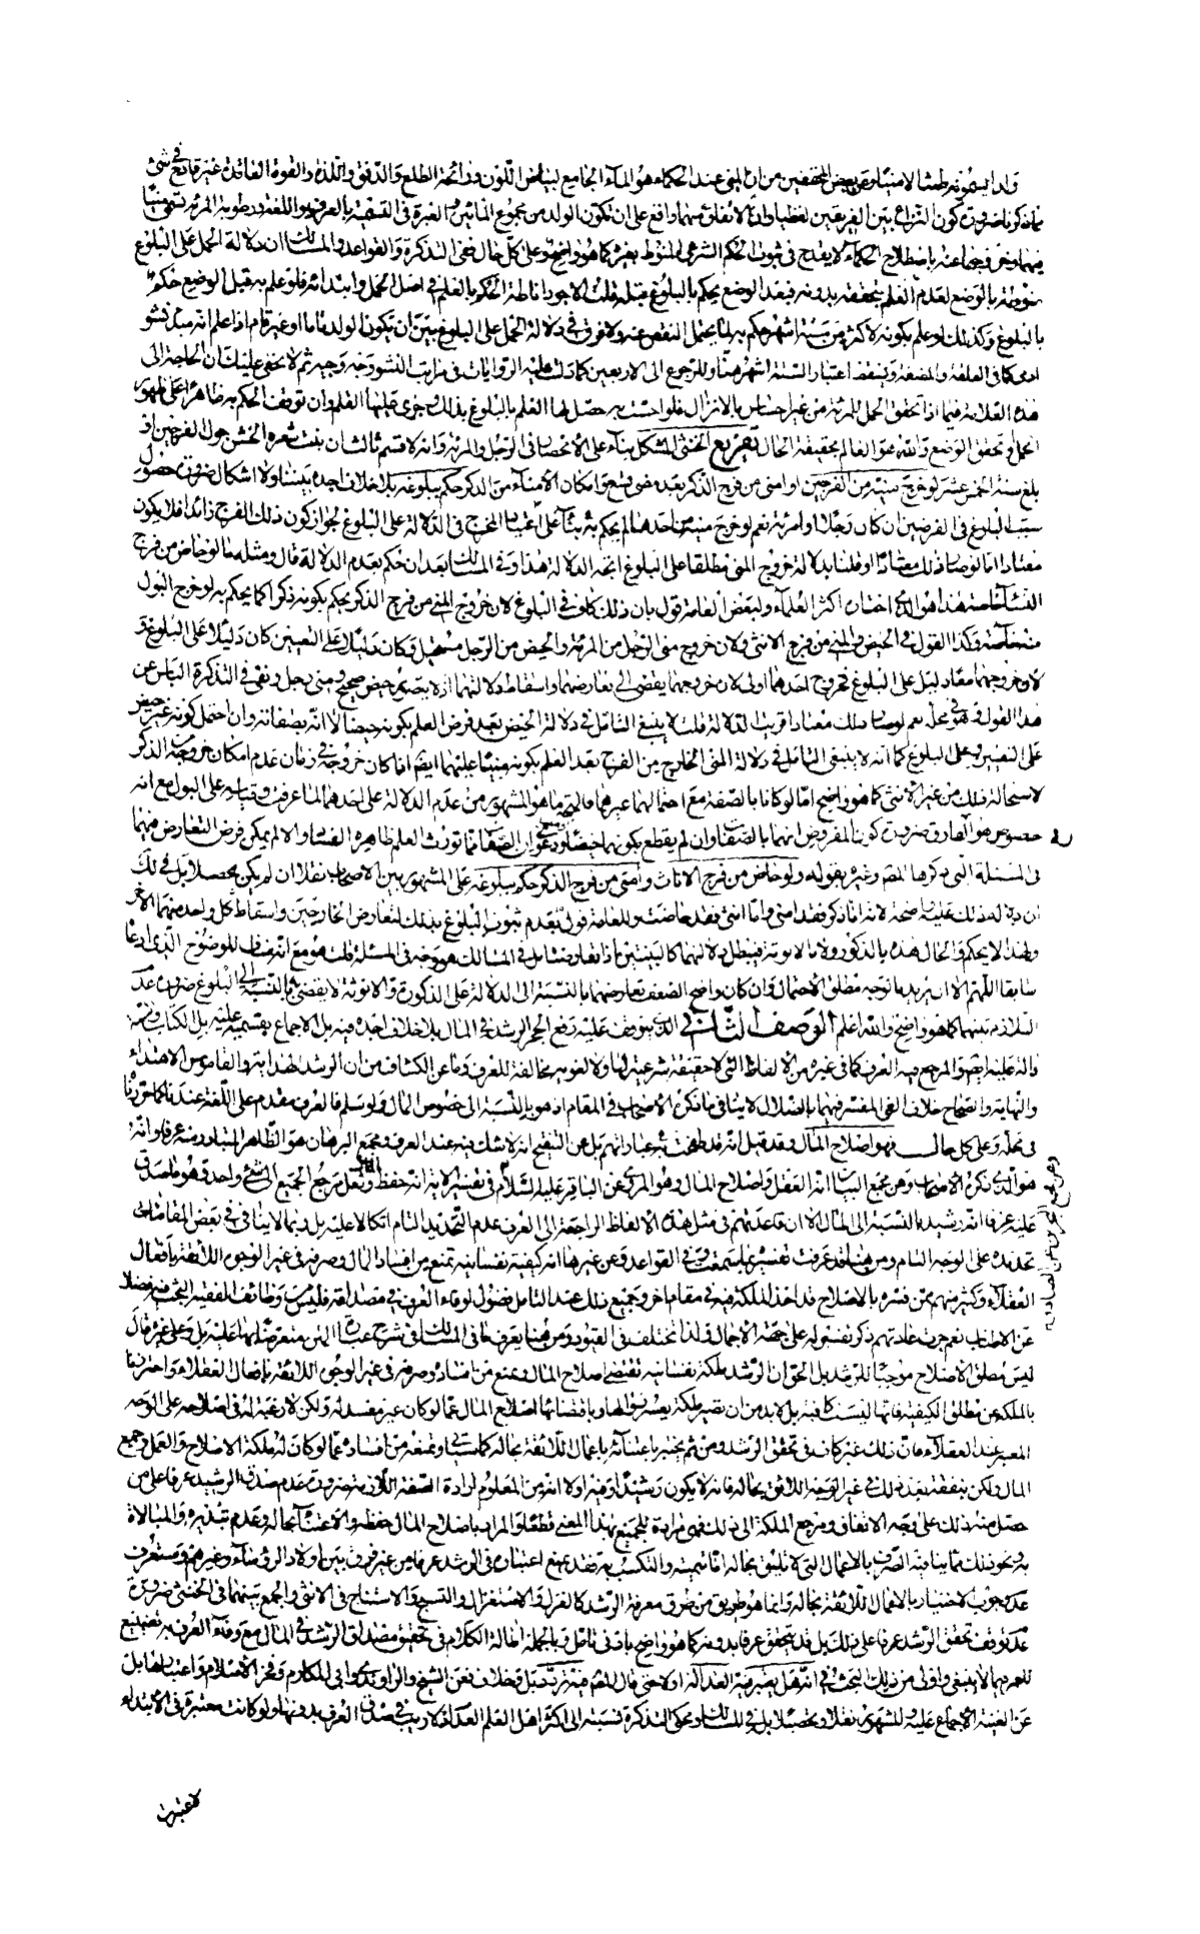 ولذا يسمونه طمثا لا منيا وعن بعض المحققين من ان المني عند الحكماء هو الماء الجامع لبياض اللون ورائحة الطلع والدفق واللذة والقوة العاقدة غير قادح في شيء
مما ذكرنا ضرورة كون النزاع بين الفريقين لفظيا وانه لا تفاق منهما واقع على ان تكون الولد من مجموع المائين والعبرة في التسمية بالعرف واللغة ورطوبة المرئة تسمى منيا
فيهما وخروجها عنه باصطلاح الحكماء لا يقدح في ثبوت الحكم الشرعي المنوط بغيره كما هو واضح وعلى كل حال ففي التذكرة والقواعد والمسالك ان دلالة الحمل على البلوغ
منوطة بالوضع لعدم العلم بتحققه بدونه فبعد الوضع يحكم بالبلوغ قبله قلت الاجود اناطة الحكم بالعلم في اصل الحمل وابتدائه فلو علم به قبل الوضع حكم
بالبلوغ وكذلك لو علم بكونه لاكثر من ستة اشهر حكم به لما يحتمل النقص عنه ولا فرق في دلالة الحمل على البلوغ بين ان يكون الولد تاما او غير تام اذا علم انه مبدء نشو
ادمي كما في العلقة والمضغة وينقض اعتبار الستة اشهر منا والرجوع الى الاربعين كما دلت عليه الروايات في مراتب النشو وجه وجيه ثم لا يخفى عليك ان الحاجة الى
هذه العلامة فيما اذا تحقق الحمل للمرئة من غير احساس بالانزال فلو احست به حصل لها العلم بالبلوغ بذلك وجرى عليها القلم وان توقف الحكم به ظاهرا على ظهور
الحمل وتحقق الوضع والله هو العالم بحقيقة الحال تفريع الخنثى المشكل بناء على الانحصار في الرجل والمرئة وانه لا قسم ثالث ان نبت شعره الخشن حول الفرجين او
بلغ سنه الخمس عشر لو خرج منيه من الفرجين او امنى من فرج الذكر بعد مضي تسع وامكان الامناء من الذكر حكم ببلوغه بلا خلاف اجده بيننا ولا اشكال ضرورة حصول
سبب البلوغ في الفرضين ان كان رجلا او امرئة نعم لو خرج منيه من احدهما لم يحكم به بناء على اعتبار المخرج في الدلالة على البلوغ لجواز كون ذلك الفرج زائدا فلا يكون
معتادا اما لو صار ذلك معتادا او قلنا بدلالة خروج المني مطلقا على البلوغ اتجه الدلالة هذا وفي المسالك بعد ان حكم بعدم الدلالة قال ومثله ما لو حاض من فرج
النساء خاصة هذا هو الذي اختاره اكثر العلماء ولبعض العامة قول بان ذلك كاف في البلوغ لان خروج المني من فرج الذكر يحكم بكونه ذكرا كما يحكم به لو خرج البول
منه خاصة وكذا القول في الحيض والمني من فرج الانثى ولان خروج مني الرجل من المرئة والحيض من الرجل مستحيل فكان دليلا على التعيين كان دليلا على البلوغ و
لان خروجهما معا دليل على البلوغ فخروج احدهما اولى لان خروجهما يفضي الى تعارضهما واسقاط دلالتهما اذ لا يتصور حيض صحيح ومني رجل ونفى في التذكرة الباس عن
هذا القول وهو في محله نعم لو صار ذلك معتادا قرب الدلالة قلت لا ينبغي التامل في دلالة الحيض بعد فرض العلم بكونه حيضا لا انه بصفاته وان احتمل كونه غير حيض
على التعيين وعلى البلوغ كما انه لا ينبغي التامل في دلالة المني الخارج من الفرج بعد العلم بكونه منيا عليهما ايضا اما كان خروجه في زمان عدم امكان خروجه من الذكر
لاستحالة ذلك من غير الانثى كما هو واضح اما لو كانا بالصفة مع احتمالهما غيرهما فالمتجه ما هو المشهور من عدم الدلالة على احدهما لما عرفت وقياسه على البول مع انه
خصوص هو الفارق ضرورة كون المفروض انهما بالصفات وان لم يقطع بكونهما حيضا ودعوى ان الصفات مما تورث العلم ظاهرة الفساد والا لم يمكن فرض التعارض منهما
في المسئلة التي ذكرها المصنف وغيره بقوله ولو حاض من فرج الاناث وامنى من فرج الذكر حكم ببلوغه على المشهور بين الاصحاب نقلا ان لم يكن محصلا بل في ذلك
ان دلالة ذلك عليه واضحة لانه اما ذكر فقد امنى واما انثى فقد حاضت وللعامة قول بعدم ثبوت البلوغ بذلك لتعارض الخارجين واسقاط كل واحد منهما الاخر
ولهذا لا يحكم والحال هذه بالذكورة ولا بالانوثة فيبطل دلالتهما كالبينتين اذا تعارضتا بل في المسالك هو وجه في المسئلة قلت هو مع انه مناف للوضوح الذي ادعاه
سابقا اللهم الا ان يريد بالوجه مطلق الاحتمال وان كان واضح الضعف تعارضهما بالنسبة الى الدلالة على الذكورة والانوثة لا يقضي به بالنسبة الى البلوغ ضرورة عدم
التلازم بينهما كما هو واضح والله اعلم الوصف الثاني الذي يتوقف عليه رفع الحجر الرشد في المال بلا خلاف اجده فيه بل الاجماع بقسميه عليه بل الكتاب والسنة
دالة عليه ايضا والمرجع فيه العرف كما في غيره من الالفاظ التي لا حقيقة شرعية لها ولا لغوية مخالفة للعرف وما عن الكشاف من ان الرشد الهداية والقاموس الاهتداء
والنهاية والصحاح خلاف الغي المفسر فيهما بالضلال لا ينافي ما ذكره الاصحاب في المقام اذ هو بالنسبة الى خصوص المال ولو سلم فالعرف مقدم على اللغة عندنا كما حررنا
في محله وعلى كل حال فهو اصلاح المال وقد قيل انه قد طفحت به عباراتهم بل عن التنقيح انه لا شك فيه عند العرف ومجمع البرهان هو الظاهر المتبادر منه عرفا وانه
هو الذي ذكره الاصحاب وعن مجمع البيان انه العقل واصلاح المال وهو المروي عن الباقر عليه السلام في تفسير الاية انه حفظ المال ولعل مرجع الجميع الى شيء واحد وهو ما صدق
عليه عرفا انه رشيد بالنسبة الى المال الا ان قاعدتهم في مثل هذه الالفاظ الراجعة الى العرف عدم التحديد التام اتكالا عليه بل ربما لا ينافي في بعض المقامات
تحديده على الوجه التام ومن هنا قد عرفت تفسيره بما سمعت وفي القواعد وعن غيرها انه كيفية نفسانية تمنع من افساد المال وصرفه في غير الوجوه اللائقة بافعال
العقلاء وكثير منهم ممن فسره بالاصلاح قد اخذ الملكة فيه في مقام اخر وجميع ذلك عند التامل فضول لوفاء العرف في مصداقه فليس من وظائف الفقيه البحث فيه فضلا
عن الاطناب نعم جرت عادتهم ذكر تفسير له على جهة الاجمال ولذا تختلف في القيود ومن هنا يعرف ما في المسالك في شرح عبارة المتن معترضا بها عليه بل وعلى غيره قال
ليس مطلق الاصلاح موجبا للرشد بل الحق ان الرشد ملكة نفسانية تقتضي اصلاح المال وتمنع من افساده وصرفه في غير الوجوه اللائقة بافعال العقلاء واحترزنا
بالملكة عن مطلق الكيفية فانها ليست كافية بل لا بد من ان تصير ملكة يعسر زوالها وباقتضائها اصلاح المال عما لو كان غير مفسد له ولكن لا رغبة له في اصلاحه على الوجه
المعتبر عند العقلاء فان ذلك غير كاف في تحقق الرشد ومن ثم يختبر باعتنائه باعمال اللائقة بحاله كما سياتي وتمنعه من افساده عما لو كان له ملكة الاصلاح والعمل وجمع
المال ولكن ينفقه بعد ذلك في غير الوجه اللائق بحاله فانه لا يكون رشيدا وفيه اولا انه من المعلوم ارادة الصفة اللازمة ضرورة عدم صدق الرشيد عرفا على من
حصل منه ذلك على وجه الاتفاق ومرجع الملكة الى ذلك فهي مرادة للجميع بهذا المعنى قطعا والمراد باصلاح المال حفظه والاعتناء بحاله وعدم تبذيره والمبالاة
به ونحو ذلك مما ينافيه الصرف بالاعمال التي لا تليق بحاله اما تنميته والتكسب به فقد يمنع اعتباره في الرشد عرفا من غير فرق بين اولاد الرؤساء وغيرهم وستعرف
عدم وجوب الاختبار بالاعمال اللائقة بحاله وانما هو طريق من طرق معرفة الرشد كالغزل والاستغزال والنسج والاستنتاج في الانثى والجمع بينهما في الخنثى ضرورة
عدم توقف تحقق الرشد عرفا على ذلك بل قد يتحقق عرفا بدونه كما هو واضح بادنى تامل وبالجملة اطالة الكلام في تحقيق مصداق الرشد في المال مع وفاء العرف به تضييع
للعمر فيما لا ينبغي واولى من ذلك البحث في انه هل يعتبر فيه العدالة او لا حتى قال المصنف فيه تردد بل وخلاف فعن الشيخ والراوندي وابي المكارم وفخر الاسلام واعتبارها بل
عن الغنية الاجماع عليه والمشهور نقلا وتحصيلا بل في المسالك ومحكي التذكرة نسبته الى اكثر اهل العلم العدم اذ لا ريب في صدق العرف بدونها ولو كانت معتبرة في الابتداء
لاعتبرت